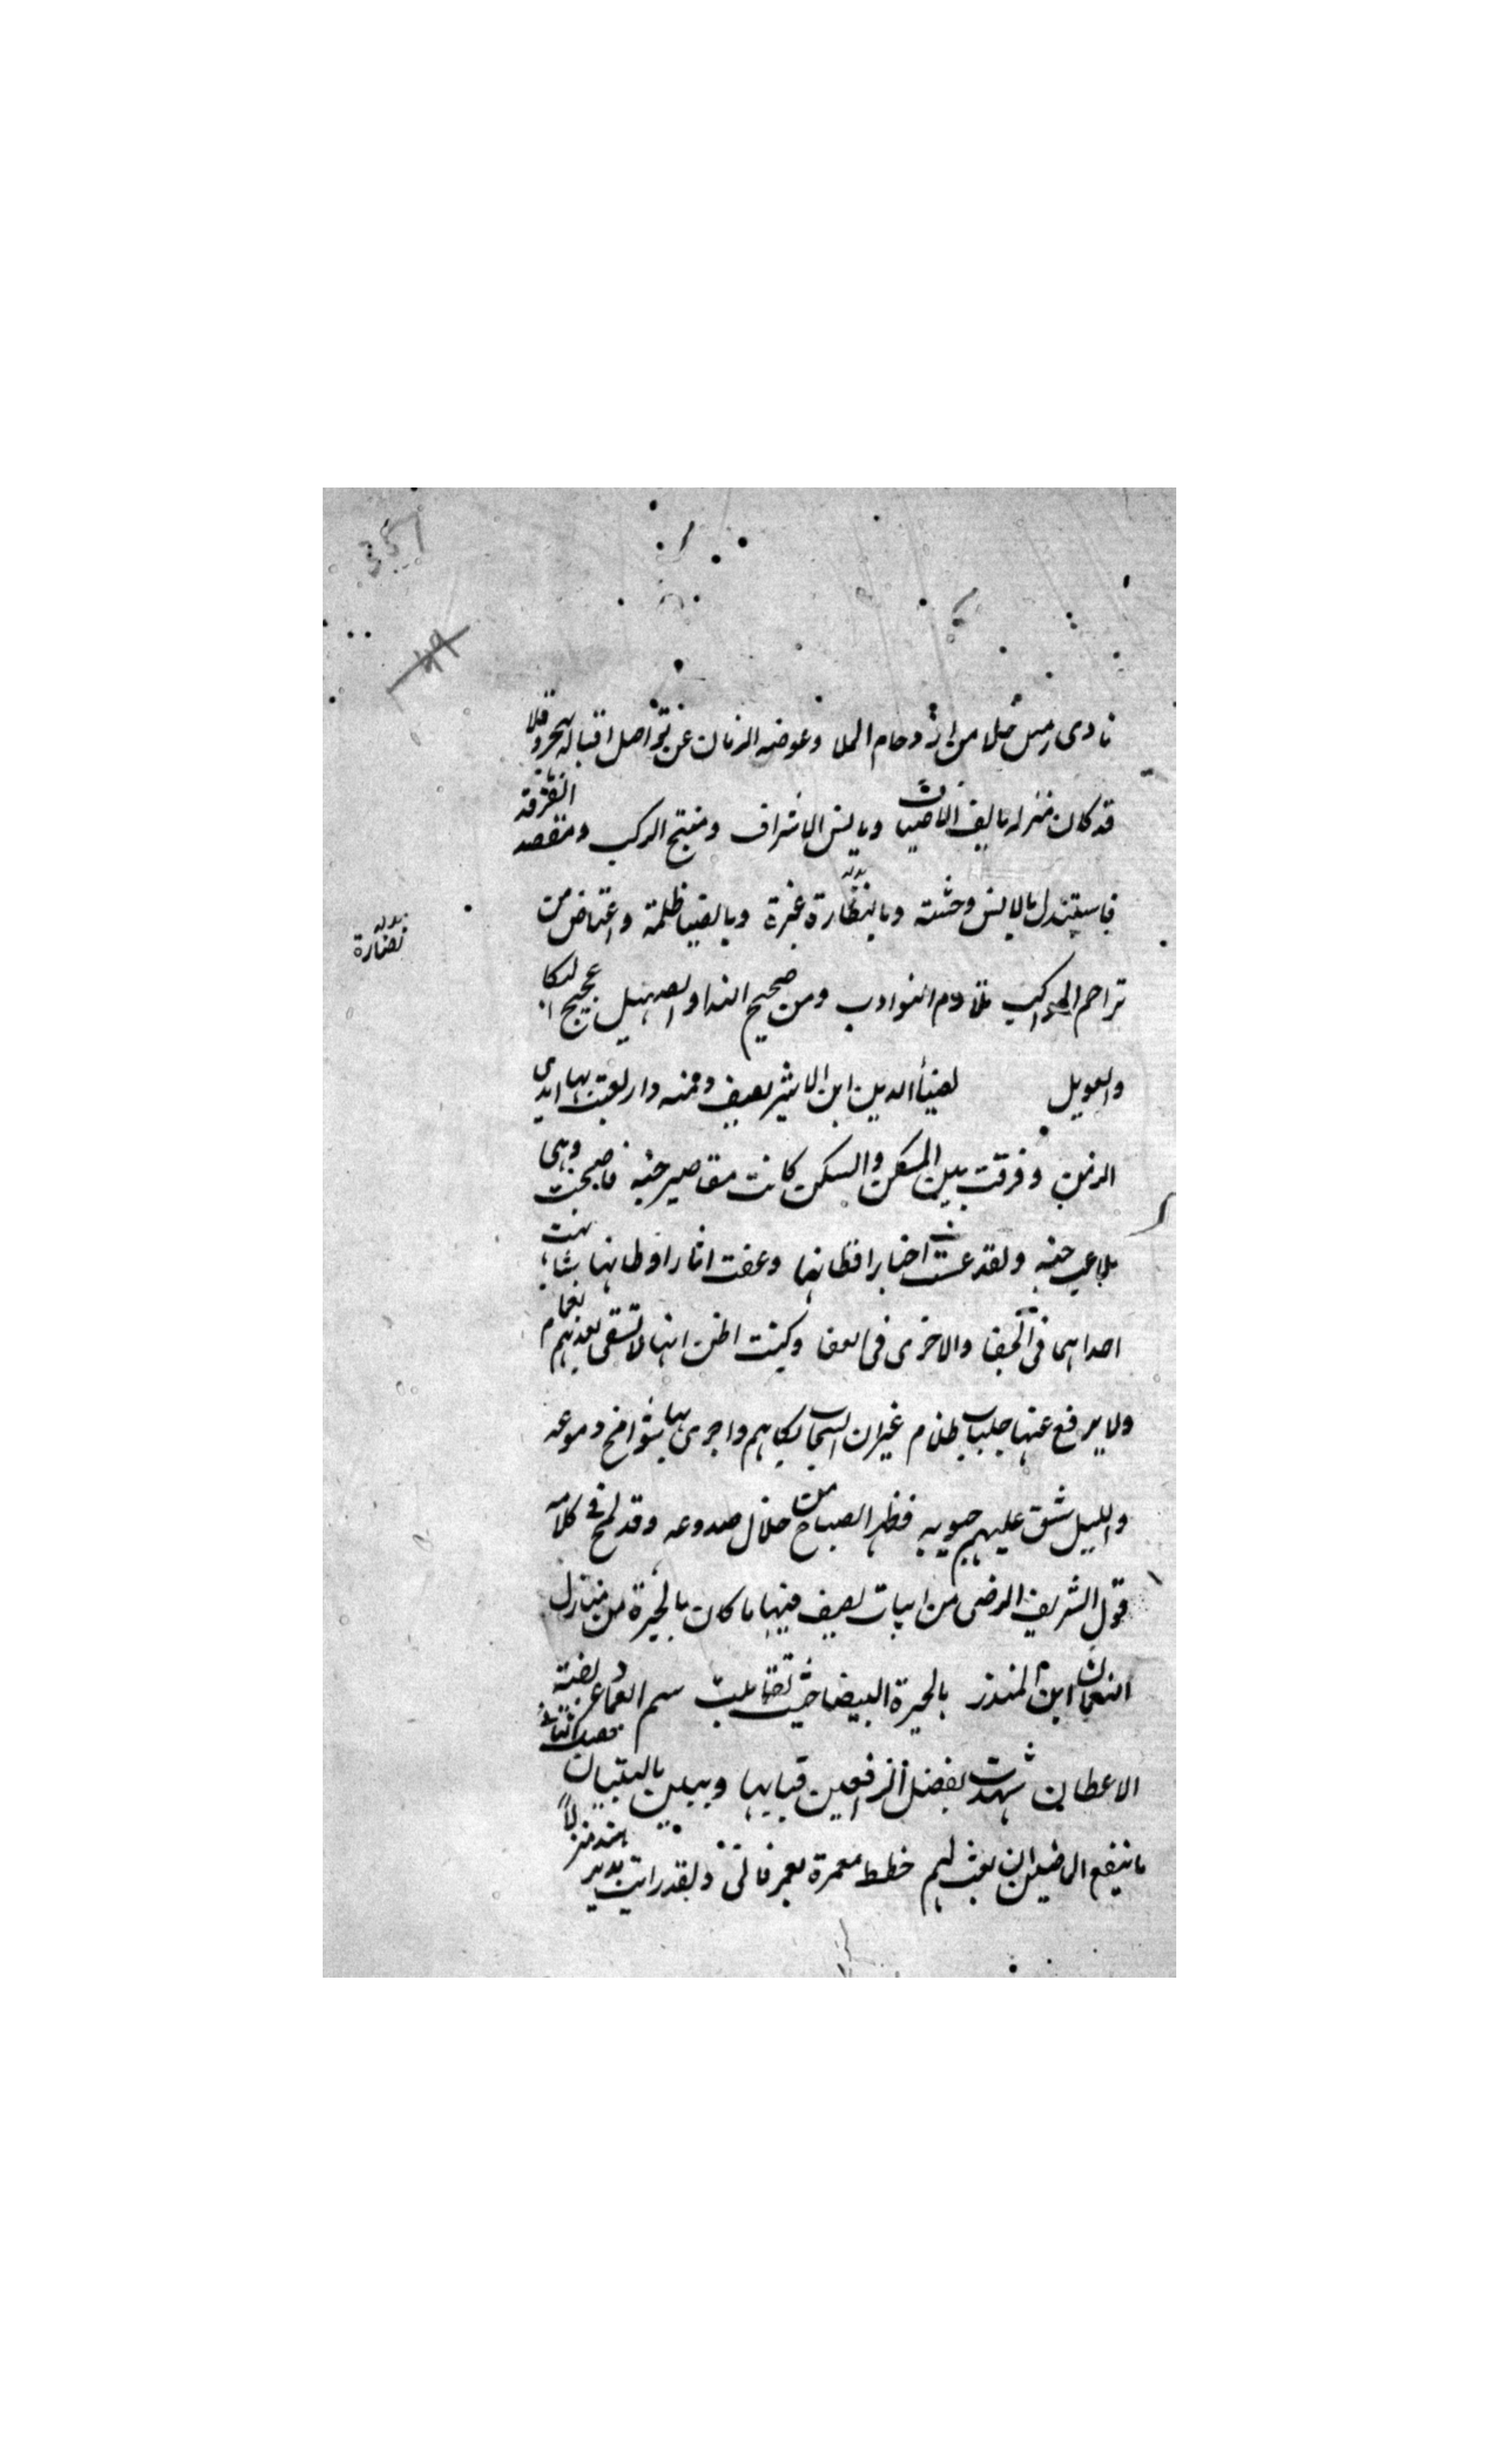 351
49
نادى رمس خلا من ازدحام الملا وعوضه الزمان عن تواصل اقباله هجر وقلا
قد كان منزله مالف الاضياف ومانس الاشراف ومنتجع الركب ومقصد
فاستبدل بالانس وحشته وبالنظارة غبرة وبالضيا ظلمة واعتاض من
بدله نضارة
تزاحم المواكب تلاوم النوادب ومن ضجيج الندا والصهيل عجيج البكا
والعويل لضيأ الدين ابن الاثير يصف دمنه دار لعبت بها ايدى
الزمن وفرقت بين المسكن والسكن كانت مقاصير جنه فاصبحت وهى
ملاعب جنه ولقد عميت اخبار قطانها وعفت اثار اوطانها
احداهما فى الخفا والاخرى فى العفا وكنت اظن انها لا تسقى بعدهم
ولا يرفع عنها جلباب ظلام غير ان السحاب بكاهم واجرى بها دموعه
والليل شق عليهم جيوبه فظهر الصباح من خلال صدوعه وقد لمح فى كلامه
قول الشريف الرضى من ابيات يصف فيها ما كان بالحيرة من منازل
النعمان ابن المنذر بالحيرة البيضا حيث تقابلت شم العماد عريضة
الاعطان شهدت بفضل الرافعين قبابها ويبين بالبنيان
ما ينفع الماضين ان بقيت لهم خطط معمرة بعمر فانى ولقد رايت بدير هند منزلاً